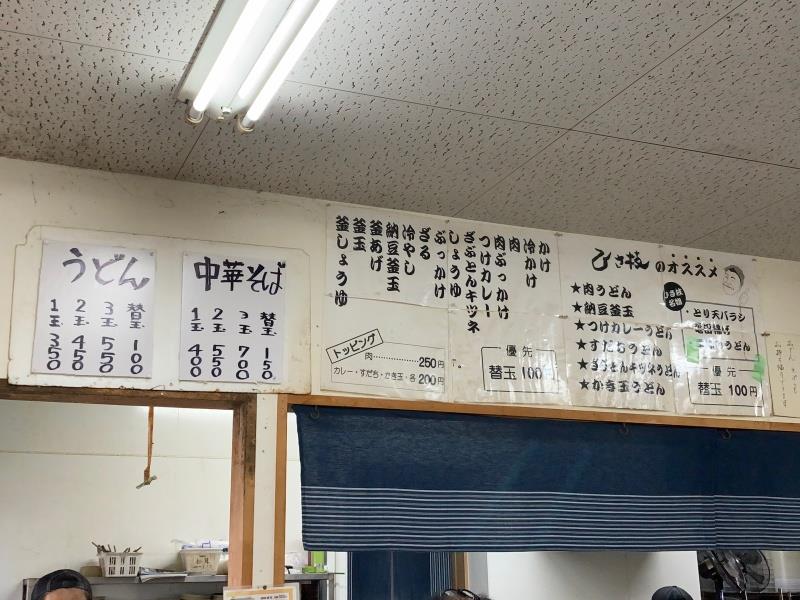 うどん
1玉 350
2玉 450
3玉 550
替玉 100
中華そば
1玉 400
2玉 550
3玉 700
替玉 150
かけ
冷かけ
肉
肉ぶっかけ
つけカレー
ざぶとんキツネ
しょうゆ
ぶっかけ
ざる
冷やし
納豆釜玉
釜あげ
釜玉
釜しょうゆ
トッピング
肉………250円
カレー・すだち・かき玉・各200円
優先
替玉100円
ひさ枝のオススメ
★肉うどん
★納豆釜玉
★つけカレーうどん
★すだちうどん
★ざぶとんキツネうどん
★かき玉うどん
ひさ枝名物
・とり天バラシ
うどん
優先
替玉100円